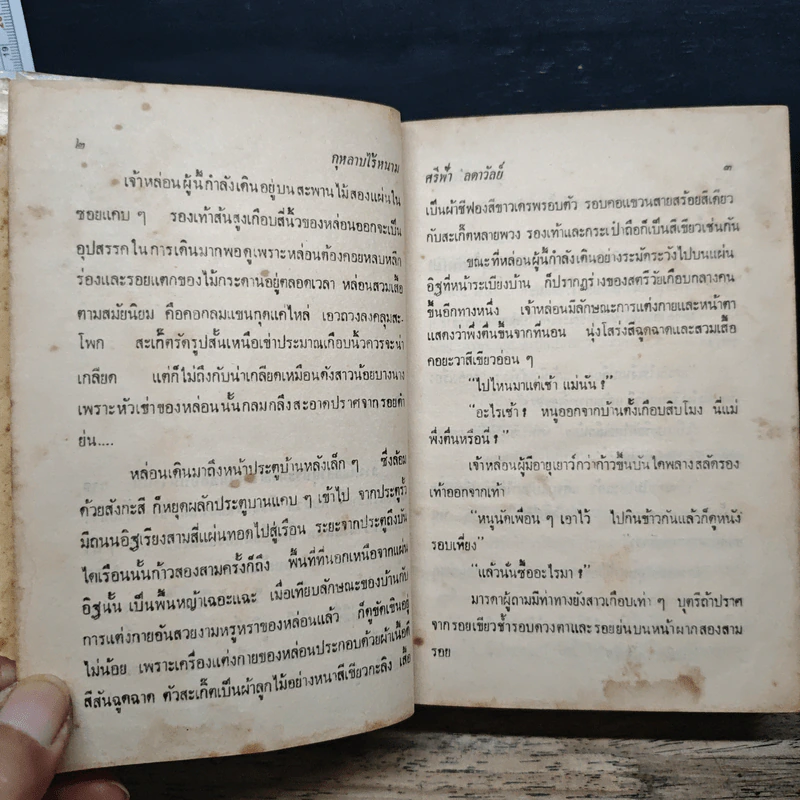 ๒
กุหลาบไร้หนาม
เจ้าหล่อนผู้นี้กำลังเดินอยู่บนสะพานไม้สองแผ่นใน
ซอยแคบ ๆ รองเท้าส้นสูงเกือบสี่นิ้วของหล่อนออกจะเป็น
อุปสรรคในการเดินมากพอดูเพราะหล่อนต้องคอยหลบหลีก
ร่องและรอยแตกของไม้กระดานอยู่ตลอดเวลา หล่อนสวมเสื้อ
ตามสมัยนิยม คือคอกลมแขนกุดแค่ไหล่ เอวถ่วงลงคลุมสะ-
โพก สะเก็ตรัดรูปสั้นเหนือเข่าประมาณเกือบนิ้วควรจะน่า
เกลียด แต่ก็ไม่ถึงกับน่าเกลียดเหมือนดังสาวน้อยบางนาง
เพราะหัวเข่าของหล่อนนั้นกลมกลึงสะอาดปราศจากรอยดำ
ย่น....
หล่อนเดินมาถึงหน้าประตูบ้านหลังเล็ก ๆ ซึ่งล้อม
ด้วยสังกะสี ก็หยุดผลักประตูบานแคบ ๆ เข้าไป จากประตูรั้ว
มีถนนอิฐเรียงสามสี่แผ่นทอดไปสู่เรือน ระยะจากประตูถึงบัน
ไดเรือนนั้นก้าวสองสามครั้งก็ถึง พื้นที่ที่นอกเหนือจากแผ่น
อิฐนั้น เป็นพื้นหญ้าเฉอะแฉะ เมื่อเทียบลักษณะของบ้านกับ
การแต่งกายอันสวยงามหรูหราของหล่อนแล้ว ก็ดูขัดเขินอยู่
ไม่น้อย เพราะเครื่องแต่งกายของหล่อนประกอบด้วยผ้าเนื้อดี
สีสันฉูดฉาด ตัวสะเก็ตเป็นผ้าลูกไม้อย่างหนาสีเขียวกะลิง เสื้อ
ศรีฟ้า ลดาวัลย์
๓
เป็นผ้าชีฟองสีขาวเดรพรอบตัว รอบคอแขวนสายสร้อยสีเดียว
กับสะเก็ตหลายพวง รองเท้าและกระเป๋าถือก็เป็นสีเขียวเช่นกัน
ขณะที่หล่อนผู้นี้กำลังเดินอย่างระมัดระวังไปบนแผ่น
อิฐที่หน้าระเบียงบ้าน ก็ปรากฏร่างของสตรีวัยเกือบกลางคน
ขึ้นอีกทางหนึ่ง เจ้าหล่อนมีลักษณะการแต่งกายและหน้าตา
แสดงว่าพึ่งตื่นขึ้นจากที่นอน นุ่งโสร่งสีฉูดฉาดและสวมเสื้อ
คอยะวาสีเขียวอ่อน ๆ
“ไปไหนมาแต่เช้า แม่นัน ?”
“อะไรเช้า ? หนูออกจากบ้านตั้งเกือบสิบโมง นี่แม่
พึ่งตื่นหรือนี่ ?”
เจ้าหล่อนผู้มีอายุเยาว์กว่าก้าวขึ้นบันไดพลางสลัดรอง
เท้าออกจากเท้า
“หนูนัดเพื่อน ๆ เอาไว้ ไปกินข้าวกันแล้วก็ดูหนัง
รอบเที่ยง”
“แล้วนั่นซื้ออะไรมา ?”
มารดาผู้ถามมีท่าทางยังสาวเกือบเท่า ๆ บุตรีถ้าปราศ
จากรอยเขียวช้ำรอบดวงตาและรอยย่นบนหน้าผากสองสาม
รอย